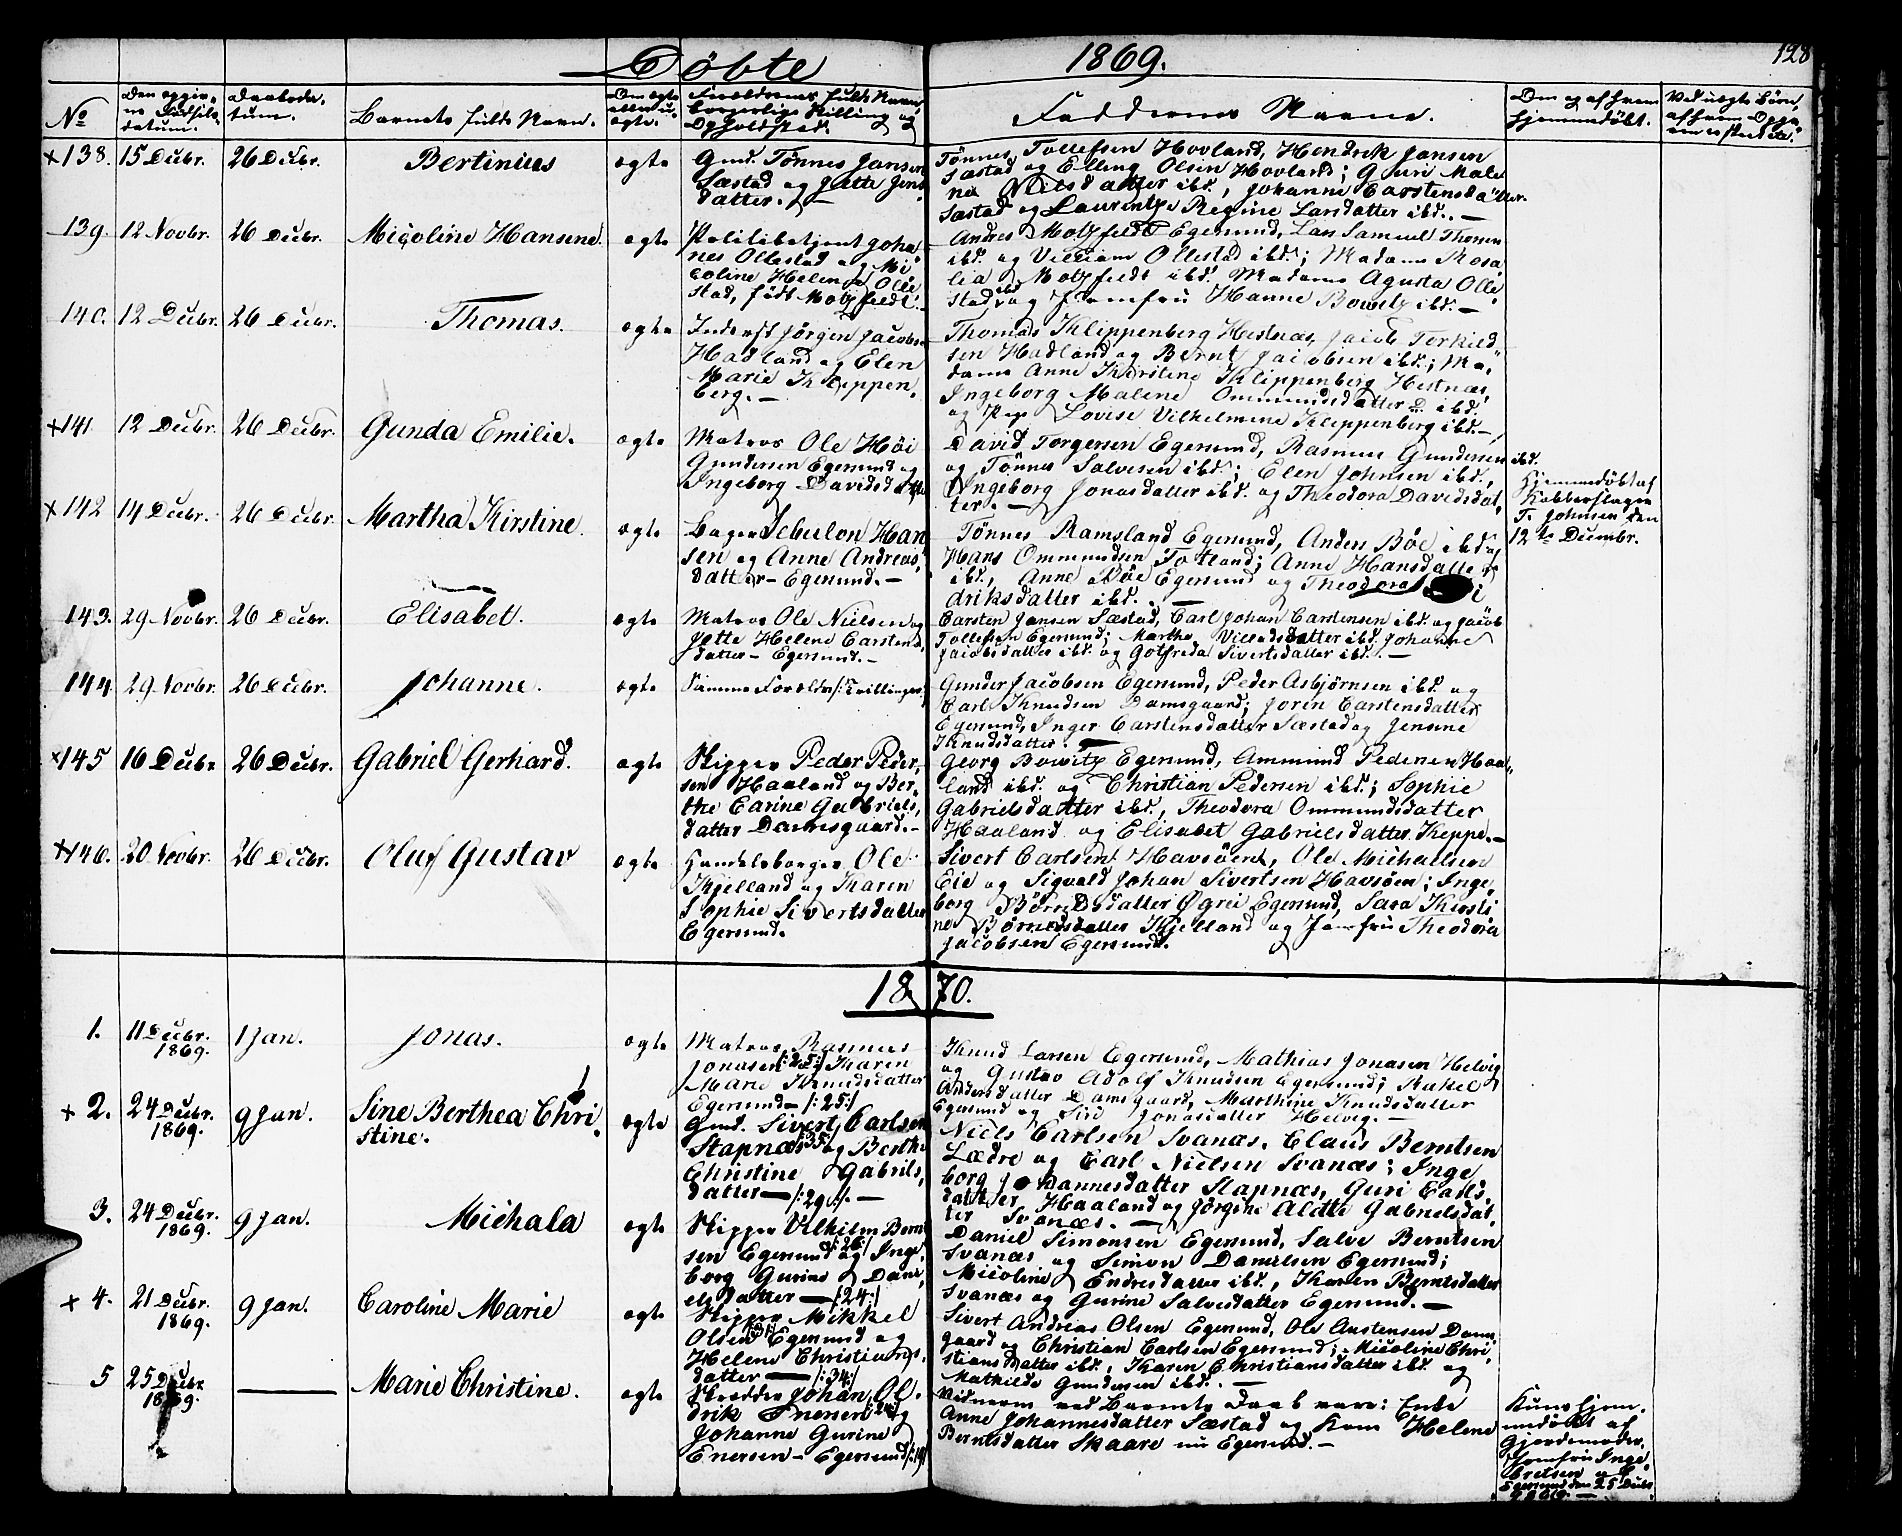 Döbte 1869. 128
No
Den opgiv-
ne Födsels-
datum.
Daabsda-
tum.
Barnets fulde Navn.
Om ægte
eller u-
ægte.
Forældrenes fulde Navn,
borgerlige Stilling og
Opholdssted.
Faddernes Navne.
Om og af hvem
hjemmedöbt.
Ved uægte Börn,
×138. 15 Decbr. 26 Decbr. Bertinius ægte
Gmd. Tönnes Jansen
Sæstad og Jütte Jens
datter. —
Tönnes Tollefsen Hovland, Hendrik Jansen
Sæstad og Elling Olsen Hovland; Guri Male
ne Nilsdatter ibd., Johanne Carstensdatter
Sæstad og Laurentze Regine Larsdatter ibd. —
139. 12 Novbr. 26 Decbr. Micoline Hansene ægte
Politibetjent Joha
nes Ollestad og Mi
coline Helene Olle
stad, födt Motzfeldt.
Andres Motzfeldt Egersund, Lars Samuel Thomsen
ibd. og Villiam Ollestad ibd.; Madame Rosa
lia Motzfeldt ibd. Madame Agusta Olle
stad ibd og Jomfru Hanne Bowitz ibd. —
140. 12 Decbr. 26 Decbr. Thomas. ægte
Inderst Jörgen Jacobsen
Hadland og Elen
Marie Kleppen
berg. —
Thomas Klippenberg Hestnæs, Jacob Terkild
sen Hadland og Bernt Jacobsen ibd.; Ma-
dame Anne Kirstine Klippenberg Hestnæs,
Ingeborg Malene Ommundsdatter ibd.
og Pige Lovise Vilhelmine Klippenberg ibd. —
×141 12 Decbr. 26 Decbr. Gunda Emilie. ægte
Matros Ole Höi
Gundersen Egersund og
Ingeborg Davidsdatter
David Torgersen Egersund, Rasmus Gundersen ibd.
og Tönnes Salvesen ibd.; Elen Johnsen ibd.,
Ingeborg Jonasdatter ibd. og Theodora Davidsdat,
ter. —
Hjemmedöbt af
Kobberslager
T. Johnsen den
12te Decembr.
×142 14 Decbr. 26 Decbr. Martha Kirstine. ægte
Bager Sebulon Han
sen og Anne Andreas
datter — Egersund. —
Tönnes Ramsland Egersund, Anders Böe ibd og
Hans Ommundsen Totland; Anne Hansdatter
ibd., Anne Böe Egersund og Theodora
driksdatter ibd. —
143. 29 Novbr. 26 Decbr. Elisabet. ægte
Matros Ole Nielsen og
Jütte Helene Carstens
datter — Egersund. —
Carsten Jansen Sæstad, Carl Johan Carstensen ibd. og Jacob
Tollefsen Egersund; Marthe Villadsdatter ibd. Johanne
Jacobsdatter ibd. og Gotfreda Sivertsdatter ibd. —
144 29 Novbr. 26 Decbr. Johanne. ægte
Samme Forældre /: Tvillinger :/
Gunder Jacobsen Egersund, Peder Asbjörnsen ibd. og
Carl Knudsen Damsgaard; Joren Carstensdatter
Egersund, Inger Carstensdatter Sæstad og Jensine
Knudsdatter. —
×145 16 Decbr 26 Decbr. Gabriel Gerhard. ægte
Skipper Peder Peder,
sen Haaland og Ber
the Carine Gabriels,
datter Damsgaard. —
Georg Bowitz Egersund, Ammund Pedersen Haa-
land ibd. og Christian Pedersen ibd.; Sophie
Gabrielsdatter ibd., Theodora Ommundsdatter
Haaland og Elisabet Gabrielsdatter Keppe. —
×146. 20 Novbr. 26 Decbr. Oluf Gustav ægte
Handelsborger Ole
Kjelland og Karen
Sophie Sivertsdatter
Egersund.
Sivert Carlsen Havsöen, Ole Michaelsen
Eie og Sigvald Johan Sivertsen Havsöen; Inge,
borg Berntsdatter Ögrei Egersund, Sara Kirsti
ne Börresdatter Kjelland og Jomfru Theodora
Jacobsen Egersund.
1870.
1. 11 Decbr. 1 Jan. Jonas. ægte
1869.
Matros Rasmus
Jonasen /:25:/ Karen
Marie Knudsdatter
Egersund — /:25:/
Knud Larsen Egersund, Mathias Jonasen Helvig
og Gustav Adolf Knudsen Egersund; Rakel
Andersdatter Damsgaard, Marthine Knudsdatter
Egersund og Siri Jonasdatter Helvig. —
× 2. 24 Decbr. 9 Jan. Sine Berthea Chri ægte
1869. stine.
Gmd. Sivert Carlsen
Stapnæs /:35:/ og Berthe
Christine Gabriels,
datter — /:29:/. —
Niels Carlsen Svanæs, Claus Berntsen
Lædre og Carl Nielsen Svanæs; Inge
borg Johannesdatter Stapnæs, Guri Carls,
datter Haaland og Jörgine Aldte Gabrielsdat,
ter Svanæs. —
3. 24 Decbr. 9 Jan. Michala ægte
1869.
Skipper Vilhelm Bernt
sen Egersund /:26:/ og Inge,
borg Gurine Dani
elsdatter — /:24:/
Daniel Simonsen Egersund, Salve Berntsen
Svanæs og Simon Danielsen Egersund;
Micoline Endresdatter ibd., Karen Berntsdatter
Svanæs og Gurine Salvesdatter Egersund. —
× 4. 21 Decbr. 9 Jan. Caroline Marie ægte
1869.
Skipper Mikkel
Olsen Egersund og
Helene Christians,
datter — /:34:/
Sivert Andreas Olsen Egersund, Ole Austensen Dams
gaard og Christian Carlsen Egersund; Micoline Chri,
stiansdatter ibd., Karen Christiansdatter ibd. og
Mathilde Gundersen ibd. —
5 25 Decbr — Marie Christine. ægte
1869.
Skrædder Johan Ol.
drik Enersen og
Johanne Gurine
Enersen — Egersund
Vidnerne ved Barnets Daab vare: Enke
Anne Johannesdatter Sæstad og Kone Helene
Berntsdatter Skaare nu Egersund. —
Kuns hjem-
medöbt af
Gjordemoder
Jomfru Inge,
bretsen
Egersund den 25 Decbr
1869. —